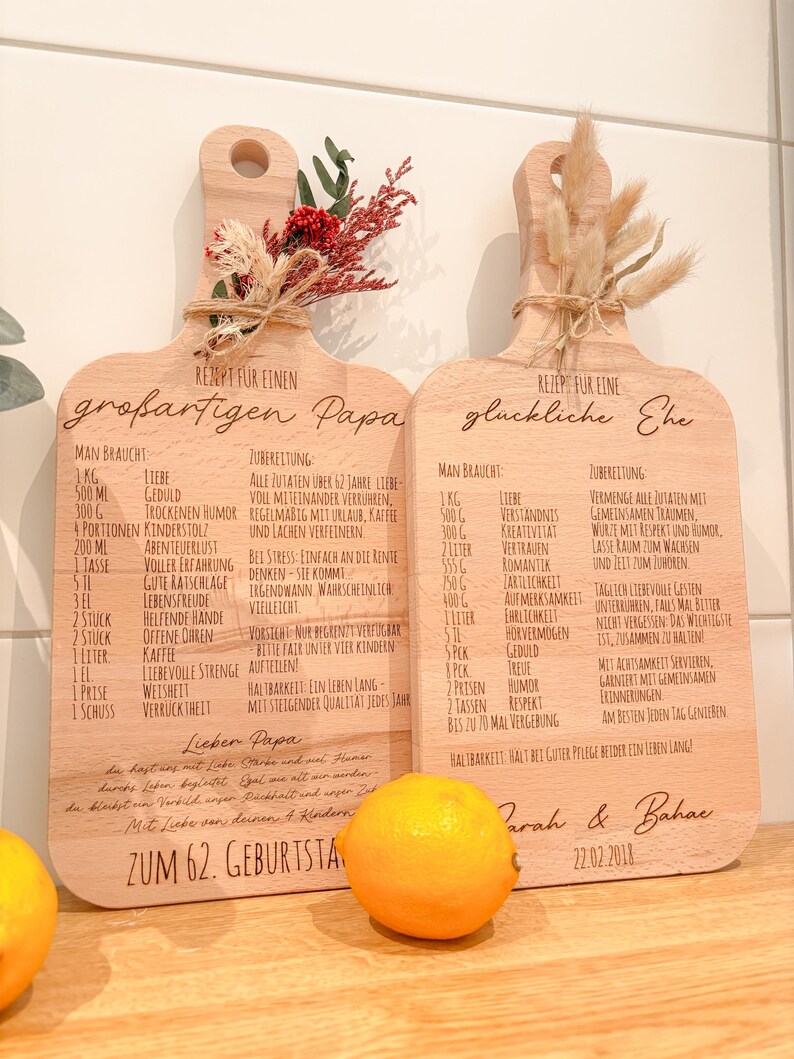 REZEPT FÜR EINEN
großartigen Papa
MAN BRAUCHT:
1 KG LIEBE
500 ML GEDULD
300 G TROCKENEN HUMOR
4 PORTIONEN KINDERSTOLZ
200 ML ABENTEUERLUST
1 TASSE VOLLER ERFAHRUNG
5 TL GUTE RATSCHLÄGE
3 EL LEBENSFREUDE
2 STÜCK HELFENDE HÄNDE
2 STÜCK OFFENE OHREN
1 LITER. KAFFEE
1 EL. LIEBEVOLLE STRENGE
1 PRISE WEISHEIT
1 SCHUSS VERRÜCKTHEIT
ZUBEREITUNG:
ALLE ZUTATEN ÜBER 62 JAHRE LIEBE-
VOLL MITEINANDER VERRÜHREN,
REGELMÄßIG MIT URLAUB, KAFFEE
UND LACHEN VERFEINERN.
BEI STRESS: EINFACH AN DIE RENTE
DENKEN - SIE KOMMT...
IRGENDWANN. WAHRSCHEINLICH.
VIELLEICHT.
VORSICHT: NUR BEGRENZT VERFÜGBAR
- BITTE FAIR UNTER VIER KINDERN
AUFTEILEN!
HALTBARKEIT: EIN LEBEN LANG -
MIT STEIGENDER QUALITÄT JEDES JAHR
Lieben Papa
du hast uns mit Liebe, Stärke und viel Humor
durchs Leben begleitet. Egal wie alt wir werden -
du bleibst ein Vorbild, unser Rückhalt und unser
Mit Liebe von deinen 4 Kindern
ZUM 62. GEBURTSTA
REZEPT FÜR EINE
glückliche Ehe
MAN BRAUCHT:
1 KG LIEBE
500 G VERSTÄNDNIS
300 G KREATIVITÄT
2 LITER VERTRAUEN
555 G ROMANTIK
750 G ZÄRTLICHKEIT
400 G AUFMERKSAMKEIT
1 LITER EHRLICHKEIT
5 TL HÖRVERMÖGEN
5 PCK GEDULD
8 PCK. TREUE
2 PRISEN HUMOR
2 TASSEN RESPEKT
BIS ZU 70 MAL VERGEBUNG
ZUBEREITUNG:
VERMENGE ALLE ZUTATEN MIT
GEMEINSAMEN TRÄUMEN,
WÜRZE MIT RESPEKT UND HUMOR,
LASSE RAUM ZUM WACHSEN
UND ZEIT ZUM ZUHÖREN.
TÄGLICH LIEBEVOLLE GESTEN
UNTERRÜHREN, FALLS MAL BITTER
NICHT VERGESSEN: DAS WICHTIGSTE
IST, ZUSAMMEN ZU HALTEN!
MIT ACHTSAMKEIT SERVIEREN,
GARNIERT MIT GEMEINSAMEN
ERINNERUNGEN.
AM BESTEN JEDEN TAG GENIEßEN.
HALTBARKEIT: HÄLT BEI GUTER PFLEGE BEIDER EIN LEBEN LANG!
Sarah & Bahae
22.02.2018